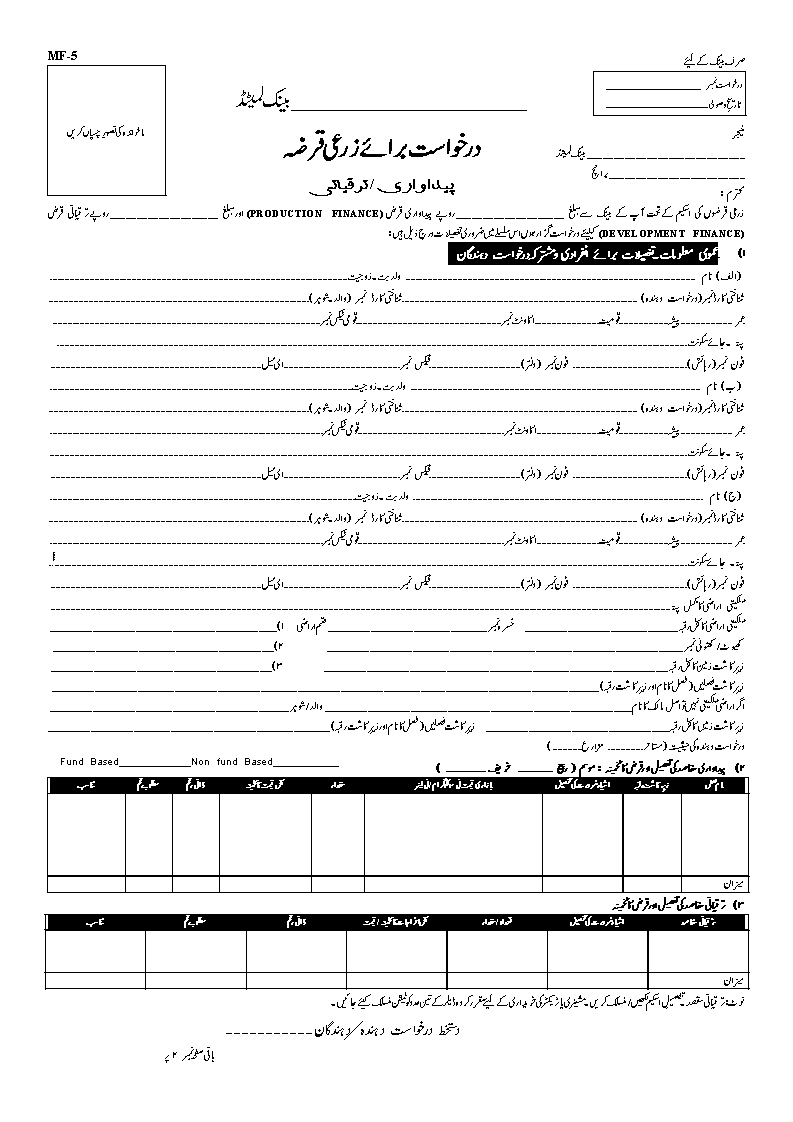 MF-5
صرف بینک کے لیئے
درخواست نمبر ____________
تاریخ وصولی ____________
بینک لمیٹڈ ____________
درخواست برائے زرعی قرضہ
پیداواری / ترقیاتی
منیجر
____________ بینک لمیٹڈ
____________ برانچ
محترم :
زرعی قرضوں کی اسکیم کے تحت آپ کے بینک سے مبلغ ____________ روپے پیداواری قرض (PRODUCTION FINANCE) اور مبلغ ____________ روپے ترقیاتی قرض
(DEVELOPMENT FINANCE) کیلئے درخواست گزار ہوں اس سلسلے میں ضروری تفصیلات درج ذیل ہیں:
۱) عمومی معلومات۔تفصیلات برائے انفرادی و مشترکہ درخواست دہندگان
(الف) نام ____________ ولدیت۔زوجیت ____________
شناختی کارڈ نمبر (درخواست دہندہ) ____________ شناختی کارڈ نمبر (والد۔شوہر) ____________
عمر ______ پیشہ ______ قومیت ______ اکاونٹ نمبر ______ قومی ٹیکس نمبر ______
پتہ۔جائے سکونت ____________
فون نمبر (رہائش) ______ فون نمبر (دفتر) ______ فیکس نمبر ______ ای میل ______
(ب) نام ____________ ولدیت۔زوجیت ____________
شناختی کارڈ نمبر (درخواست دہندہ) ____________ شناختی کارڈ نمبر (والد۔شوہر) ____________
عمر ______ پیشہ ______ قومیت ______ اکاونٹ نمبر ______ قومی ٹیکس نمبر ______
پتہ۔جائے سکونت ____________
فون نمبر (رہائش) ______ فون نمبر (دفتر) ______ فیکس نمبر ______ ای میل ______
(ج) نام ____________ ولدیت۔زوجیت ____________
شناختی کارڈ نمبر (درخواست دہندہ) ____________ شناختی کارڈ نمبر (والد۔شوہر) ____________
عمر ______ پیشہ ______ قومیت ______ اکاونٹ نمبر ______ قومی ٹیکس نمبر ______
پتہ۔جائے سکونت ____________
فون نمبر (رہائش) ______ فون نمبر (دفتر) ______ فیکس نمبر ______ ای میل ______
ملکیتی اراضی کا مکمل پتہ ____________
ملکیتی اراضی کا کل رقبہ ____________ خسرہ نمبر ____________ قسم اراضی ۱) ____________
کھیوٹ / کھتونی نمبر ____________ ۲) ____________
زیر کاشت زمین کا کل رقبہ ____________ ۳) ____________
زیر کاشت فصلیں (فصل کا نام اور زیر کاشت رقبہ) ____________
اگر اراضی ملکیتی نہیں تو اصل مالک کا نام ____________ والد / شوہر ____________
زیر کاشت زمین کا کل رقبہ ____________ زیر کاشت فصلیں (فصل کا نام اور زیر کاشت رقبہ) ____________
درخواست دہندہ کی حیثیت (مستاجر ______ مزارع ______)
Fund Based____________Non fund Based____________
۲) پیداواری مقاصد کی تفصیل اور قرض کا تخمینہ : موسم (ربیع ______ خریف ______)
نام فصل
میزان
۳) ترقیاتی مقاصد کی تفصیل اور قرض کا تخمینہ
ترقیاتی مقاصد
میزان
نوٹ: ترقیاتی مقصد۔تفصیل اسکیم لکھیں / منسلک کریں۔مشینری یا ٹریکٹر کی خریداری کے لیئے مقرر کردہ ڈیلر کے تین عدد کوٹیشن منسلک کیئے جائیں۔
دستخط درخواست دہندہ / دہندگان ____________
باقی صفحہ نمبر ۲ پر